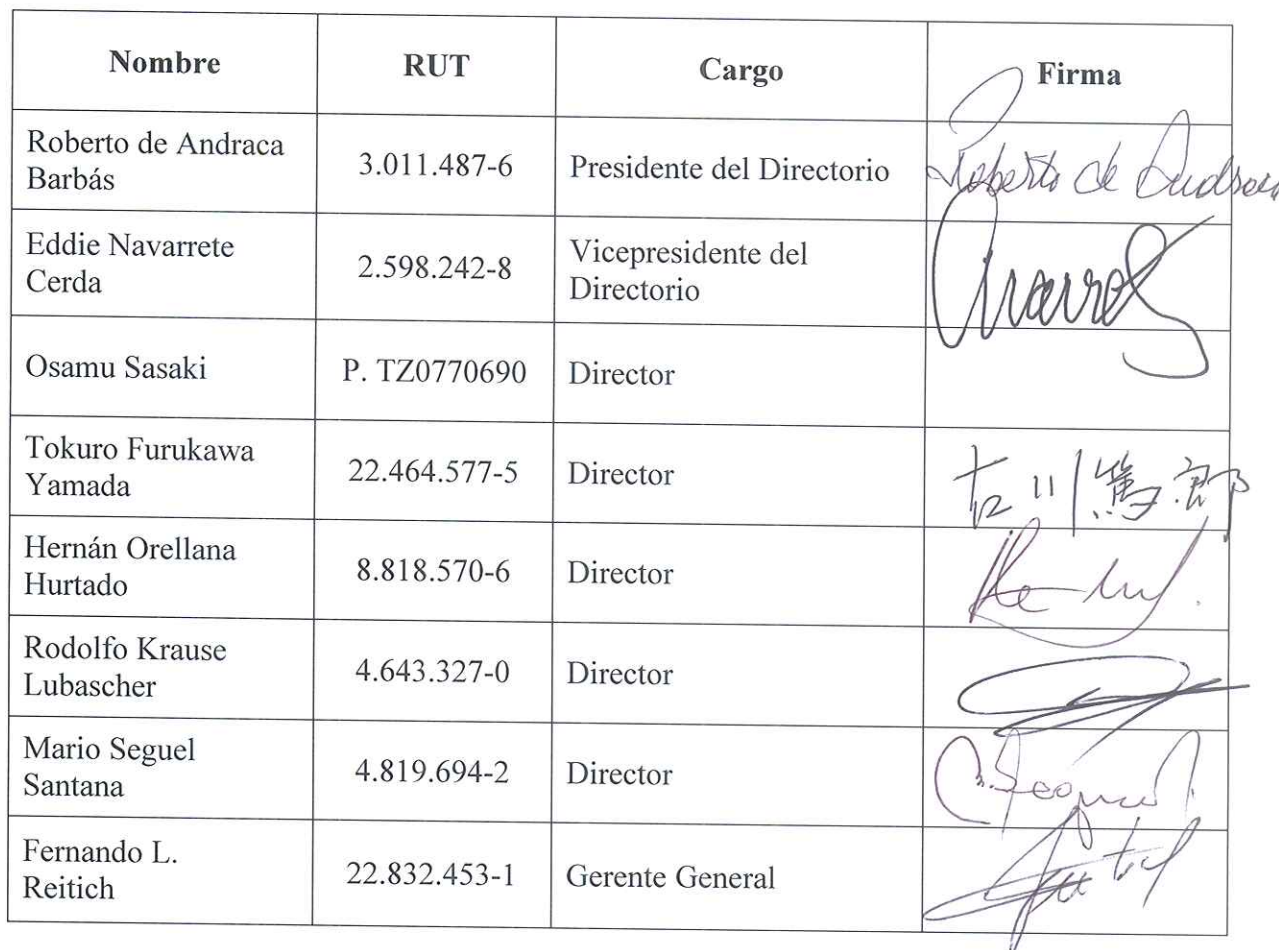 Nombre RUT Cargo Firma
Roberto de Andraca
Barbás
3.011.487-6 Presidente del Directorio Roberto de Andraca
Eddie Navarrete
Cerda
2.598.242-8 Vicepresidente del
Directorio
Osamu Sasaki P. TZ0770690 Director
Tokuro Furukawa
Yamada
22.464.577-5 Director 古川篤郎
Hernán Orellana
Hurtado
8.818.570-6 Director
Rodolfo Krause
Lubascher
4.643.327-0 Director
Mario Seguel
Santana
4.819.694-2 Director
Fernando L.
Reitich
22.832.453-1 Gerente General